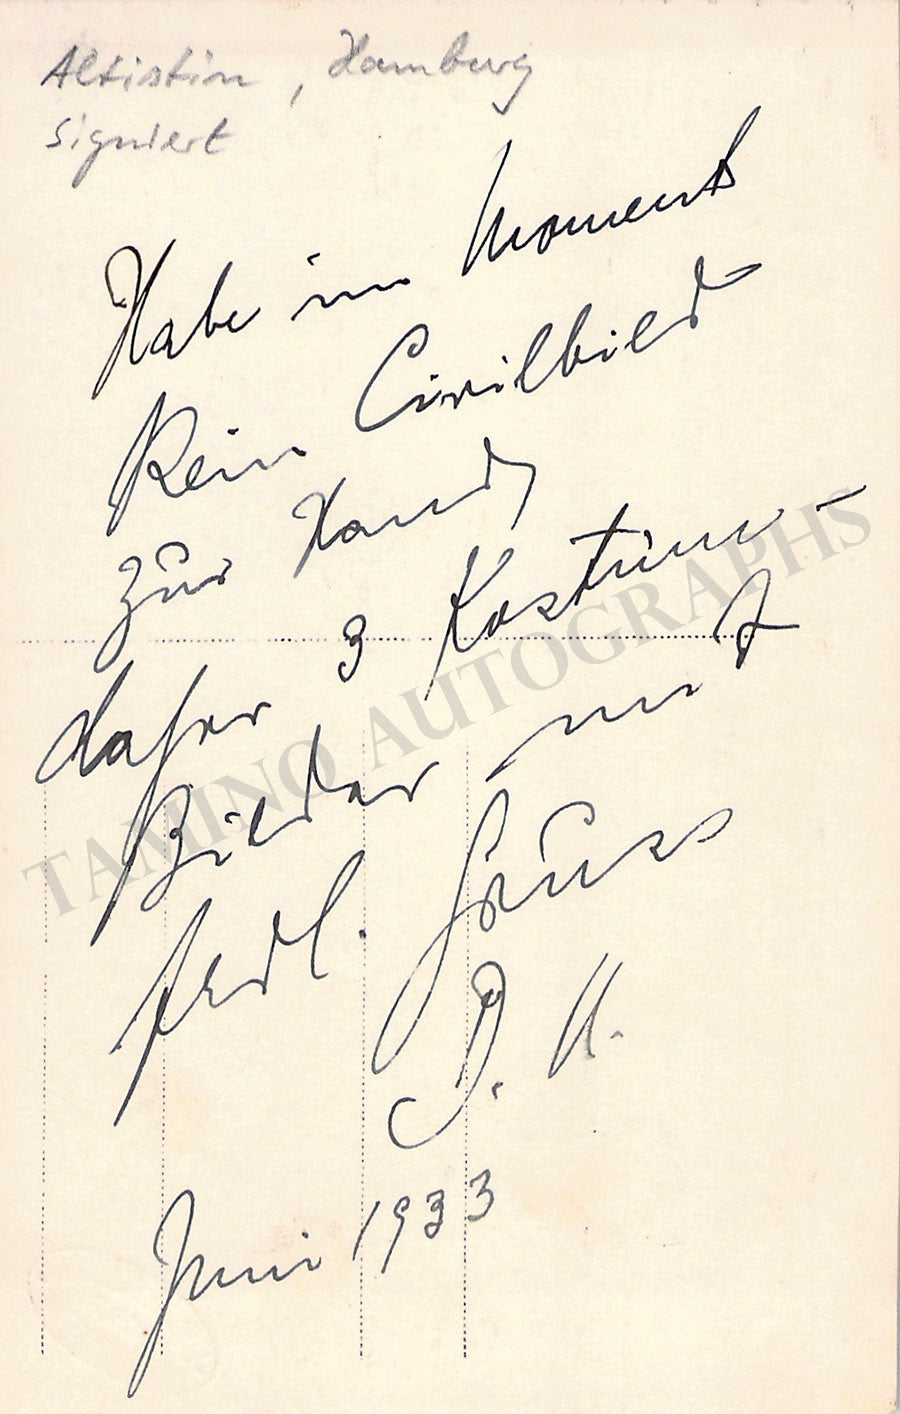 Altistin, Hamburg
signiert
Habe im Moment
kein Civilbild
zur Hand,
daher 3 Kostüm-
Bilder mit
frdl. Gruss
D. U.
Juni 1933
TAMINO AUTOGRAPHS